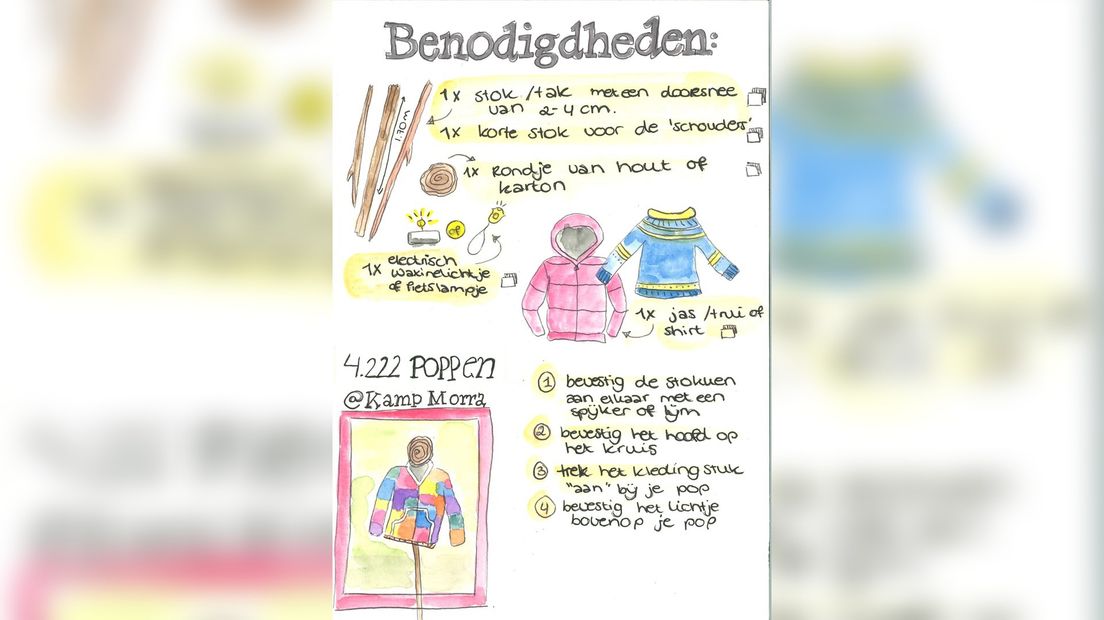 Benodigdheden:
1x stok /tak met een doorsnee
van 2-4 cm.
1x korte stok voor de 'schouders'
1.70m
1x Rondje van hout of
karton
of
1x electrisch
waxinelichtje
of fietslampje
1x jas /trui of
shirt
4.222 POPPEN
@Kamp Morra
1 bevestig de stokken
aan elkaar met een
spijker of lijm
2 bevestig het hoofd op
het kruis
3 trek het kleding stuk
"aan" bij je pop
4 bevestig het lichtje
bovenop je pop